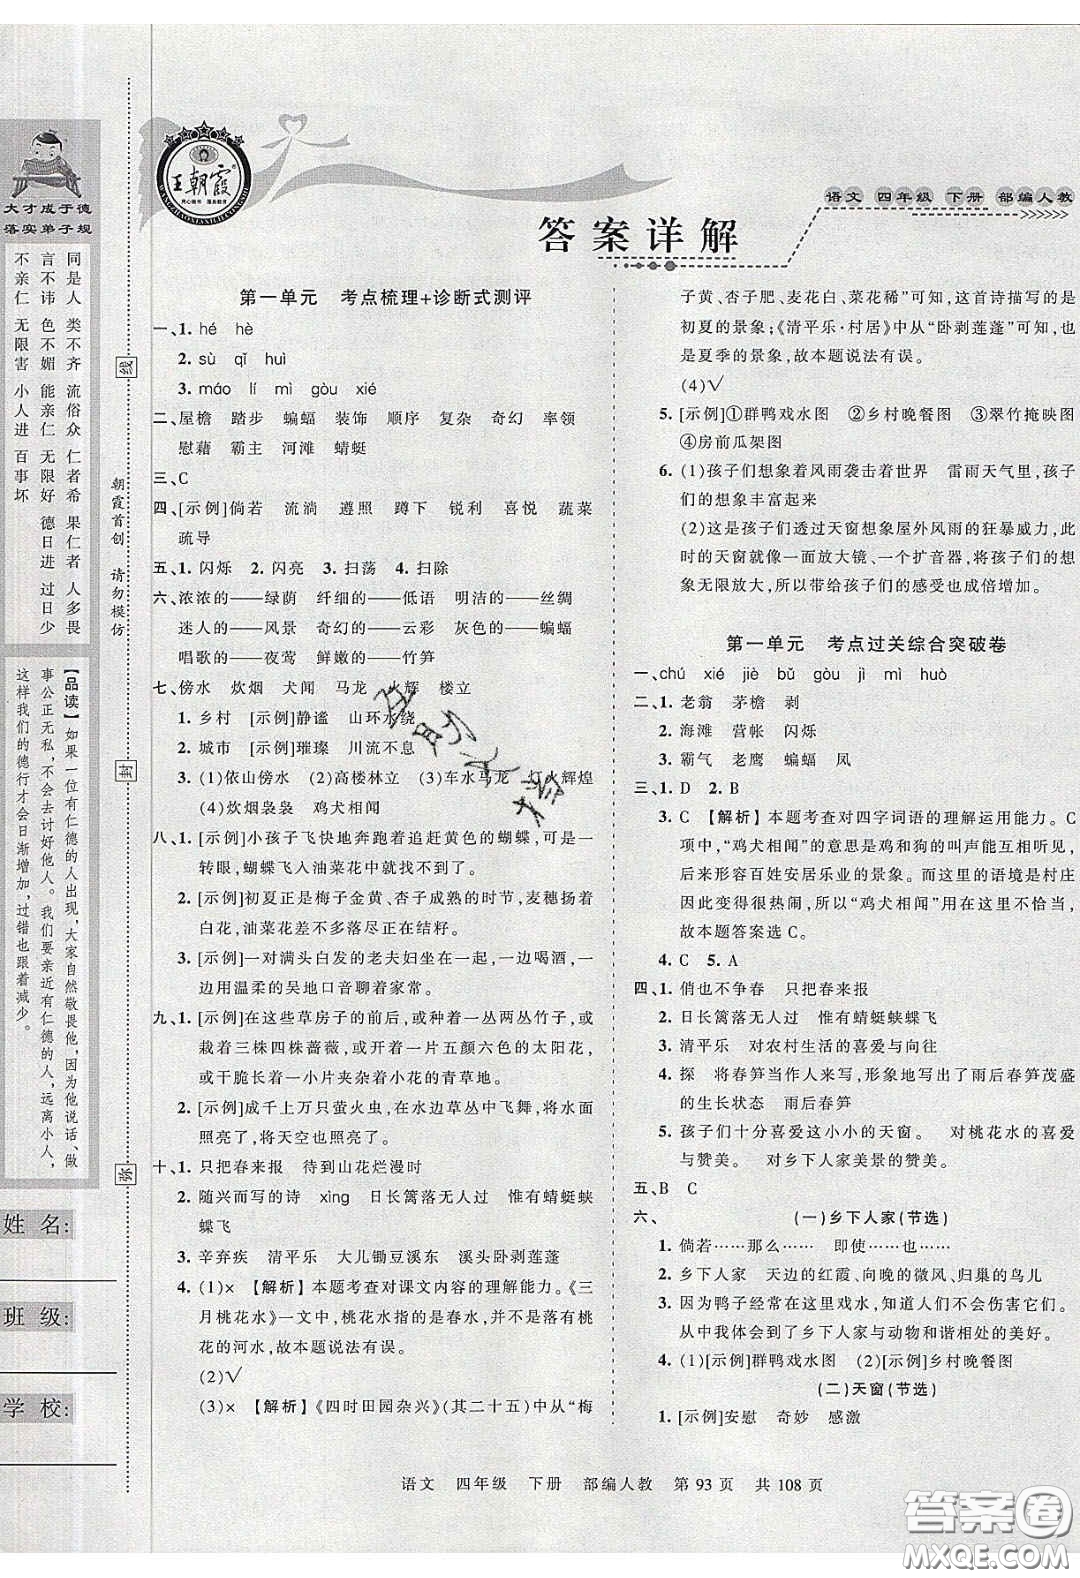 王朝霞
语文 四年级 下册 部编人教
答案详解
大才成于德
落实弟子规
同是人 类不齐 流俗众 仁者希 果仁者 人多畏
言不讳 色不媚 能亲仁 无限好 德日进 过日少
不亲仁 无限害 小人进 百事坏
【品读】如果一位有仁德的人出现,大家自然敬畏他,因为他说话、做
事公正无私,不会去讨好他人。我们要亲近有仁德的人,远离小人,
这样我们的德行才会日渐增加,过错也跟着减少。
朝霞首创 请勿模仿
线
封
弥
姓名:
班级:
学校:
第一单元 考点梳理+诊断式测评
一、1. hé hè
2. sù qǐ huì
3. máo lí mì gòu xié
二、屋檐 踏步 蝙蝠 装饰 顺序 复杂 奇幻 率领
慰藉 霸主 河滩 蜻蜓
三、C
四、[示例]倘若 流淌 遵照 蹲下 锐利 喜悦 蔬菜
疏导
五、1. 闪烁 2. 闪亮 3. 扫荡 4. 扫除
六、浓浓的——绿荫 纤细的——低语 明洁的——丝绸
迷人的——风景 奇幻的——云彩 灰色的——蝙蝠
唱歌的——夜莺 鲜嫩的——竹笋
七、傍水 炊烟 犬闻 马龙 火辉 楼立
1. 乡村 [示例]静谧 山环水绕
2. 城市 [示例]璀璨 川流不息
3. (1)依山傍水 (2)高楼林立 (3)车水马龙 灯火辉煌
(4)炊烟袅袅 鸡犬相闻
八、1. [示例]小孩子飞快地奔跑着追赶黄色的蝴蝶,可是一
转眼,蝴蝶飞入油菜花中就找不到了。
2. [示例]初夏正是梅子金黄、杏子成熟的时节,麦穗扬着
白花,油菜花差不多落尽正在结籽。
3. [示例]一对满头白发的老夫妇坐在一起,一边喝酒,一
边用温柔的吴地口音聊着家常。
九、1. [示例]在这些草房子的前后,或种着一丛两丛竹子,或
栽着三株四株蔷薇,或开着一片五颜六色的太阳花,
或干脆就是一小片夹杂着小花的青草地。
2. [示例]成千上万只萤火虫,在水边草丛中飞舞,将水面
照亮了,将天空也照亮了。
十、1. 只把春来报 待到山花烂漫时
2. 随兴而写的诗 xìng 日长篱落无人过 惟有蜻蜓蛱
蝶飞
3. 辛弃疾 清平乐 大儿锄豆溪东 溪头卧剥莲蓬
4. (1)× 【解析】本题考查对课文内容的理解能力。《三
月桃花水》一文中,桃花水指的是春水,并不是有桃
花的河水,故本题说法有误。
(2)√
(3)× 【解析】《四时田园杂兴》(其二十五)中从“梅
子黄、杏子肥、麦花白、菜花稀”可知,这首诗描写的是
初夏的景象;《清平乐·村居》中从“卧剥莲蓬”可知,也
是夏季的景象,故本题说法有误。
(4)√
5. [示例]①群鸭戏水图 ②乡村晚餐图 ③翠竹掩映图
④房前瓜架图
6. (1)孩子们想象着风雨袭击着世界 雷雨天气里,孩子
们的想象丰富起来
(2)这是孩子们透过天窗想象屋外风雨的狂暴威力,此
时的天窗就像一面放大镜、一个扩音器,将孩子们的想
象无限放大,所以带给孩子们的感受也成倍增加。
第一单元 考点过关综合突破卷
一、chú xié jiè bǔ gòu jì mì huò
二、1. 老翁 茅檐 剥
2. 海滩 营帐 闪烁
3. 霸气 老鹰 蝙蝠 凤
三、1. D 2. B
3. C 【解析】本题考查对四字词语的理解运用能力。C
项中,“鸡犬相闻”的意思是鸡和狗的叫声能互相听见,
后来形容百姓安居乐业的景象。而这里的语境是村庄
突然变得很热闹,所以“鸡犬相闻”用在这里不恰当,
故本题答案选 C。
4. C 5. A
四、1. 俏也不争春 只把春来报
2. 日长篱落无人过 惟有蜻蜓蛱蝶飞
3. 清平乐 对农村生活的喜爱与向往
4. 探 将春笋当作人来写,形象地写出了雨后春笋茂盛
的生长状态 雨后春笋
5. 孩子们十分喜爱这小小的天窗。 对桃花水的喜爱
与赞美。 对乡下人家美景的赞美。
五、B C
六、 (一)乡下人家(节选)
1. 倘若……那么…… 即使……也……
2. 乡下人家 天边的红霞、向晚的微风、归巢的鸟儿
3. 因为鸭子经常在这里戏水,知道人们不会伤害它们。
从中我体会到了乡下人家与动物和谐相处的美好。
4. (1)[示例]群鸭戏水图 (2)[示例]乡村晚餐图
(二)天窗(节选)
1. [示例]安慰 奇妙 感激
语文 四年级 下册 部编人教 第 93 页 共 108 页
答案圈
MXQE.COM